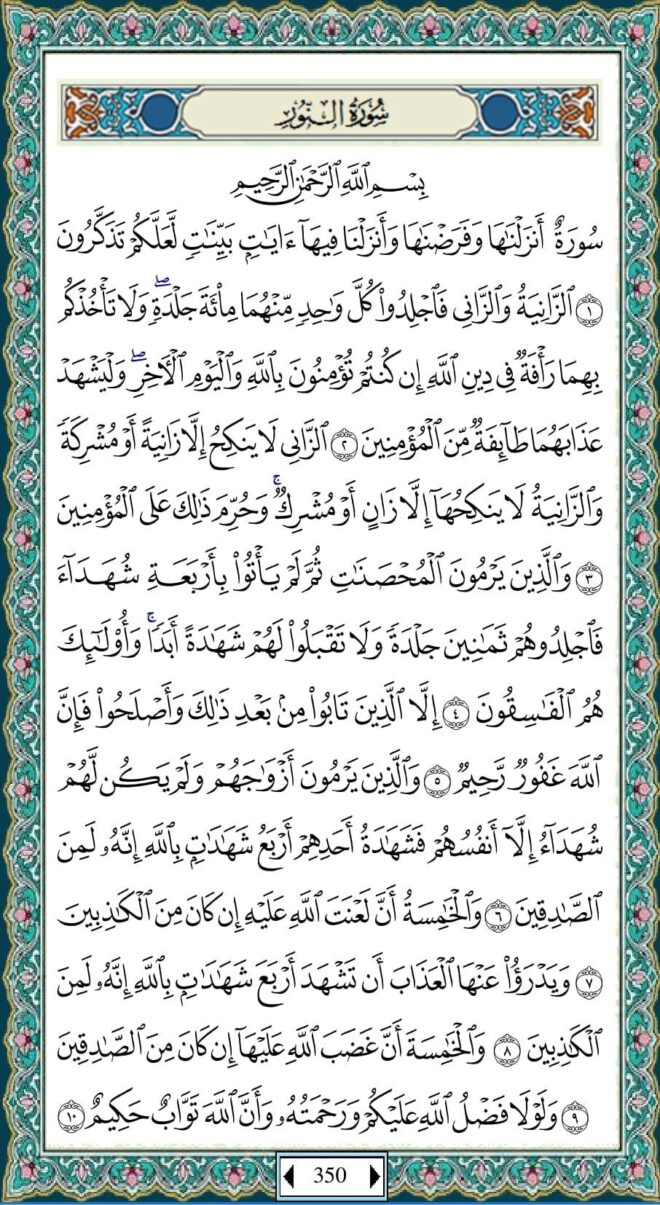 سُورَةُ النُّورِ
بِسْمِ ٱللَّهِ ٱلرَّحْمَٰنِ ٱلرَّحِيمِ
سُورَةٌ أَنزَلْنَٰهَا وَفَرَضْنَٰهَا وَأَنزَلْنَا فِيهَآ ءَايَٰتٍۭ بَيِّنَٰتٍ لَّعَلَّكُمْ تَذَكَّرُونَ
١ ٱلزَّانِيَةُ وَٱلزَّانِى فَٱجْلِدُوا۟ كُلَّ وَٰحِدٍ مِّنْهُمَا مِا۟ئَةَ جَلْدَةٍۖ وَلَا تَأْخُذْكُم
بِهِمَا رَأْفَةٌ فِى دِينِ ٱللَّهِ إِن كُنتُمْ تُؤْمِنُونَ بِٱللَّهِ وَٱلْيَوْمِ ٱلْءَاخِرِۖ وَلْيَشْهَدْ
عَذَابَهُمَا طَآئِفَةٌ مِّنَ ٱلْمُؤْمِنِينَ ٢ ٱلزَّانِى لَا يَنكِحُ إِلَّا زَانِيَةً أَوْ مُشْرِكَةً
وَٱلزَّانِيَةُ لَا يَنكِحُهَآ إِلَّا زَانٍ أَوْ مُشْرِكٌۚ وَحُرِّمَ ذَٰلِكَ عَلَى ٱلْمُؤْمِنِينَ
٣ وَٱلَّذِينَ يَرْمُونَ ٱلْمُحْصَنَٰتِ ثُمَّ لَمْ يَأْتُوا۟ بِأَرْبَعَةِ شُهَدَآءَ
فَٱجْلِدُوهُمْ ثَمَٰنِينَ جَلْدَةً وَلَا تَقْبَلُوا۟ لَهُمْ شَهَٰدَةً أَبَدًاۚ وَأُو۟لَٰٓئِكَ
هُمُ ٱلْفَٰسِقُونَ ٤ إِلَّا ٱلَّذِينَ تَابُوا۟ مِنۢ بَعْدِ ذَٰلِكَ وَأَصْلَحُوا۟ فَإِنَّ
ٱللَّهَ غَفُورٌ رَّحِيمٌ ٥ وَٱلَّذِينَ يَرْمُونَ أَزْوَٰجَهُمْ وَلَمْ يَكُن لَّهُمْ
شُهَدَآءُ إِلَّآ أَنفُسُهُمْ فَشَهَٰدَةُ أَحَدِهِمْ أَرْبَعُ شَهَٰدَٰتٍۭ بِٱللَّهِ إِنَّهُۥ لَمِنَ
ٱلصَّٰدِقِينَ ٦ وَٱلْخَٰمِسَةُ أَنَّ لَعْنَتَ ٱللَّهِ عَلَيْهِ إِن كَانَ مِنَ ٱلْكَٰذِبِينَ
٧ وَيَدْرَؤُا۟ عَنْهَا ٱلْعَذَابَ أَن تَشْهَدَ أَرْبَعَ شَهَٰدَٰتٍۭ بِٱللَّهِ إِنَّهُۥ لَمِنَ
ٱلْكَٰذِبِينَ ٨ وَٱلْخَٰمِسَةَ أَنَّ غَضَبَ ٱللَّهِ عَلَيْهَآ إِن كَانَ مِنَ ٱلصَّٰدِقِينَ
٩ وَلَوْلَا فَضْلُ ٱللَّهِ عَلَيْكُمْ وَرَحْمَتُهُۥ وَأَنَّ ٱللَّهَ تَوَّابٌ حَكِيمٌ ١٠
350